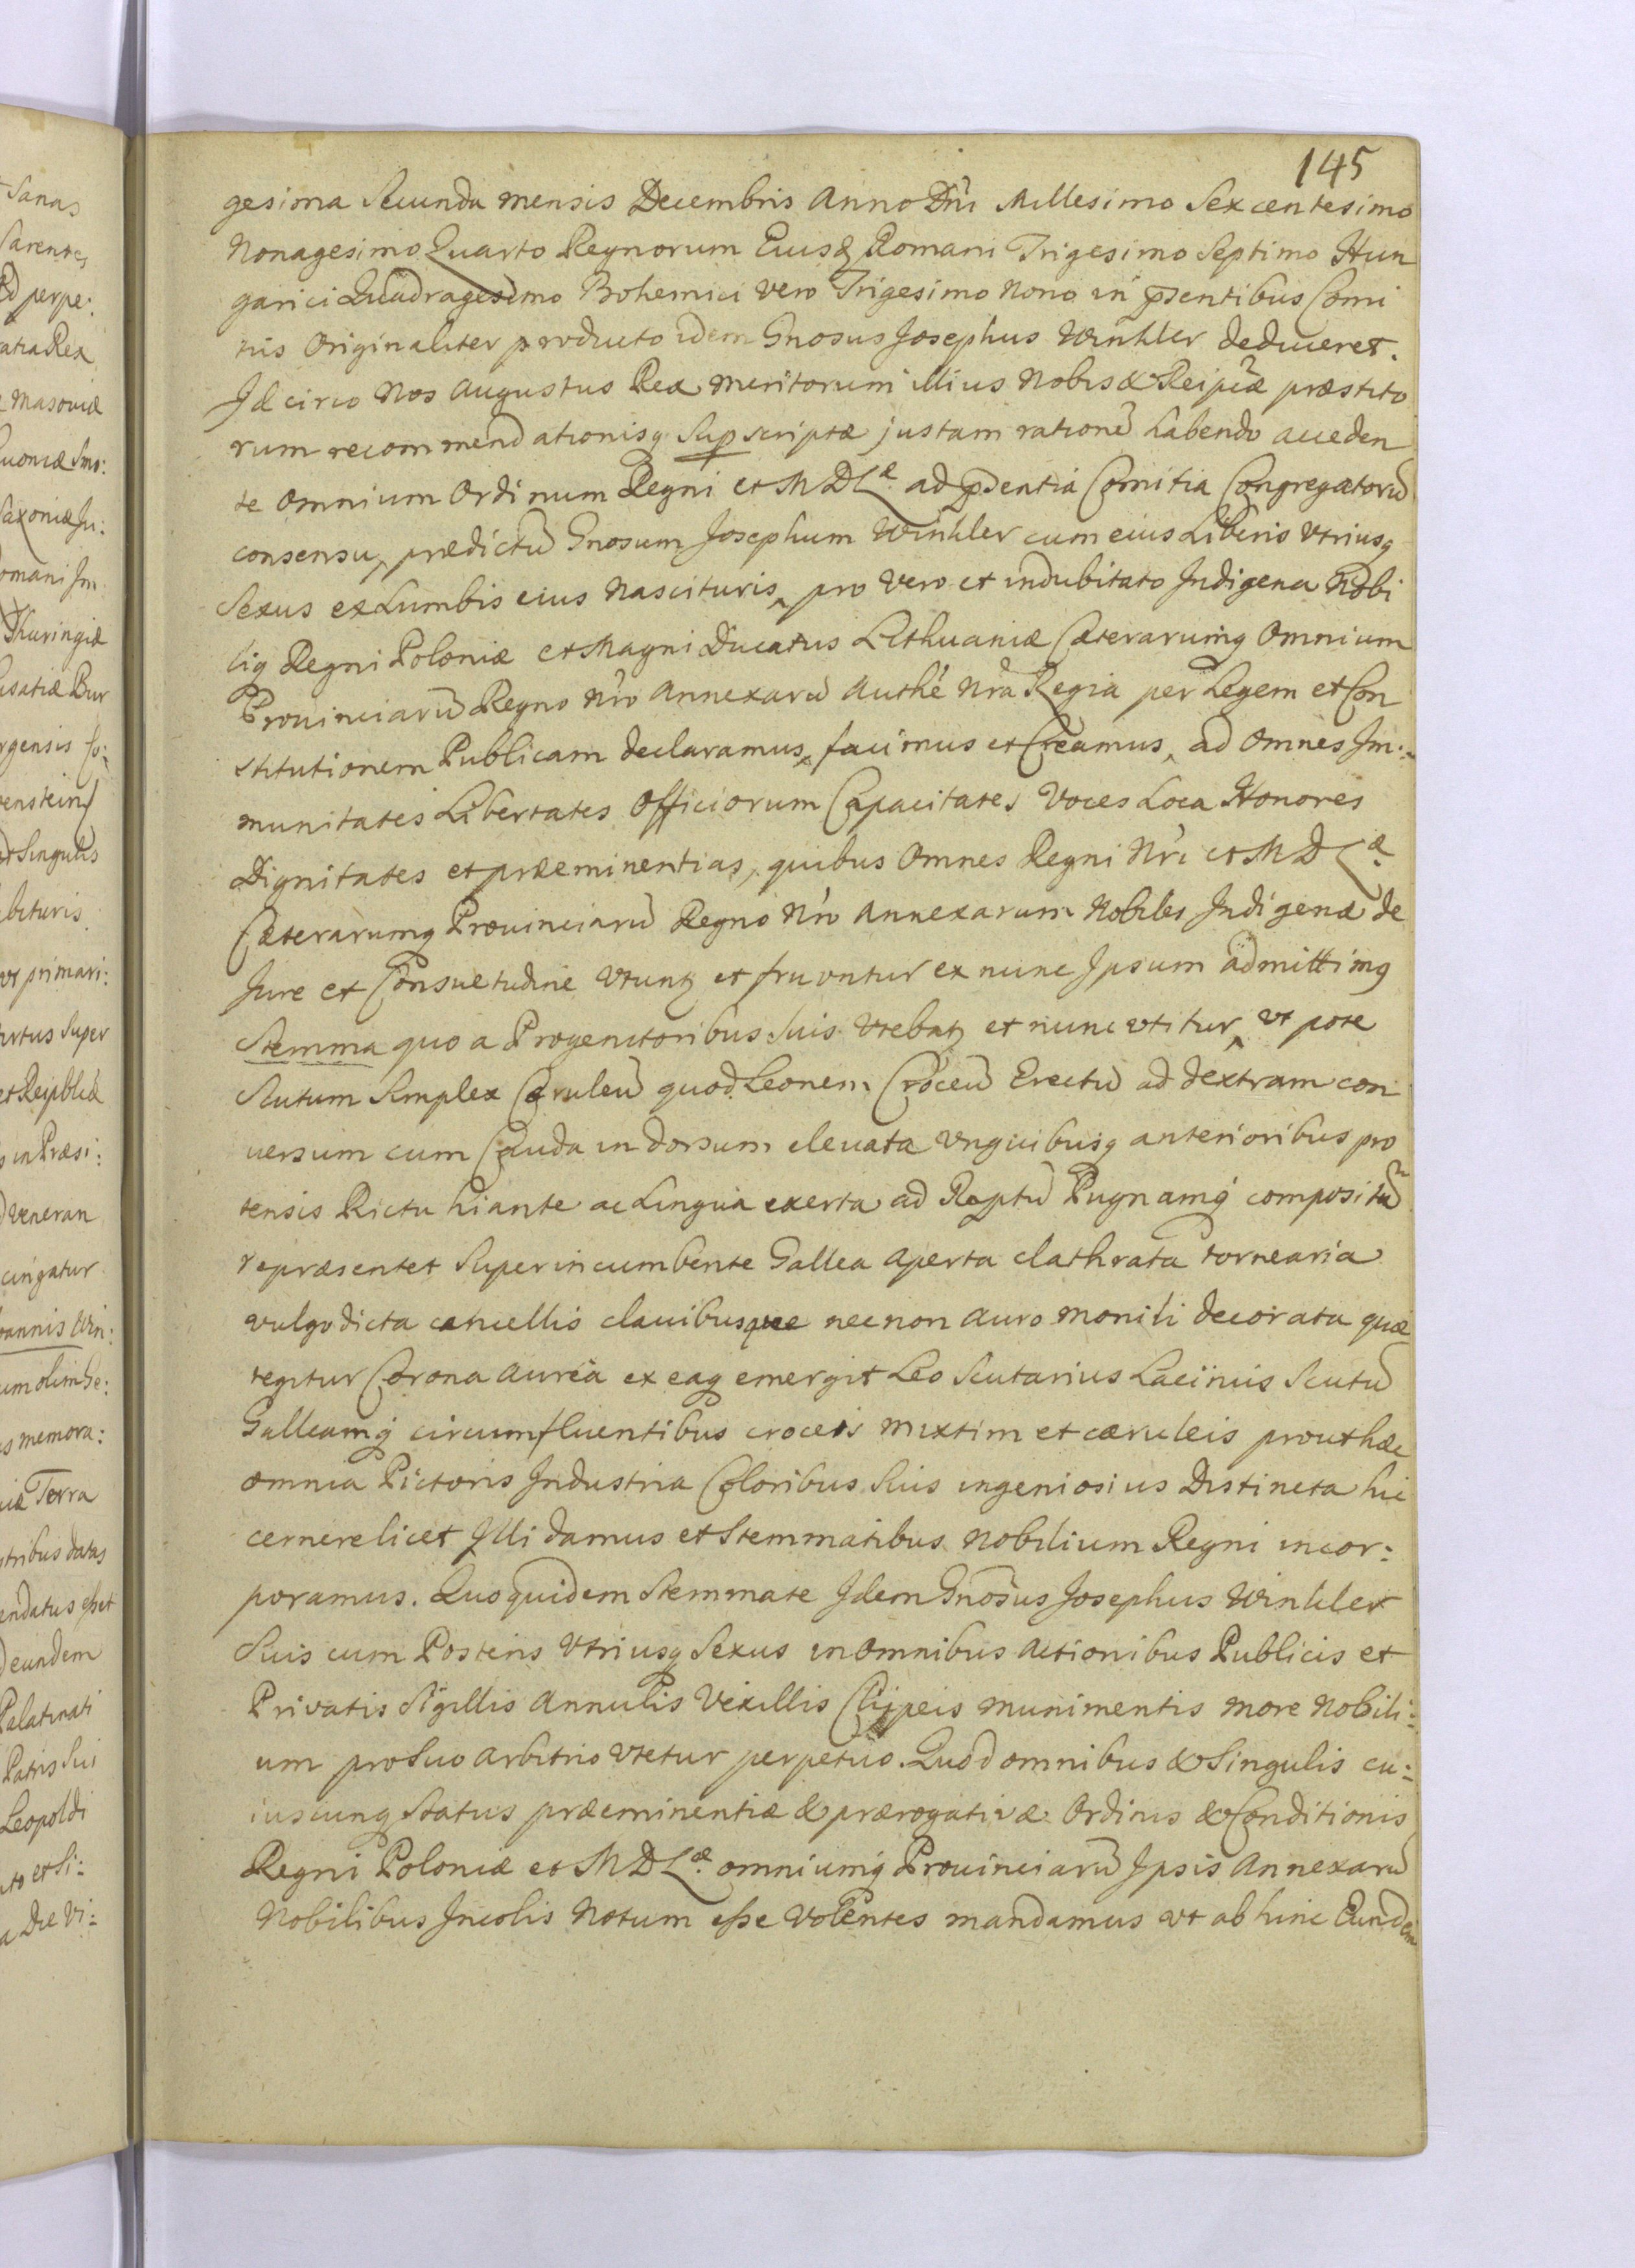 145
gesima Secunda mensis Decembris Anno Dñi Millesimo Sexcentesimo
Nonagesimo Quarto Regnorum Eiusq Romani Trigesimo Septimo Hun
garici Quadragesimo Bohemici vero Trigesimo Nono in pñsentibus Comi
tiis Originaliter producto idem Gnosus Josephus Winkler deduceret.
Idcirco Nos Augustus Rex meritorum illius Nobis & Reipcæ præstito
rum recommendationisq supscriptæ justam rationē habendo acceden
te Omnium Ordinum Regni et M D Læ ad pñsentia Comitia Congregatorū
consensu, prædictū Gnosum Josephum Winkler cum eius Liberis Vtriusq
Sexus ex Lumbis eius Nascituris, pro Vero et indubitato Indigena Nobi
liq Regni Poloniæ et Magni Ducatus Lithuaniæ Cæterarumq Omnium
Prouinciarū Regno Nřo Annexarū Authē Nřa Regia per Legem et Con
stitutionem Publicam declaramus, facimus et Creamus, ad Omnes Im:
munitates Libertates Officiorum Capacitates Voces Loca Honores
Dignitates et præeminentias, quibus Omnes Regni Nři et M D Læ
Cæterarumq Prouinciarū Regno Nřo Annexarum Nobiles Indigenæ de
Jure et Consuetudine Vtuntz et fruontur ex nunc Ipsum admittimq
Stemma quo a Progenitoribus Suis Vtebatz et nunc vtitur, vt pote
Scutum Simplex Cæruleū quod Leonem Croceū Erectū ad dextram con
uersum cum Cauda in dorsum eleuata Vnguibusq anterioribus pro
tensis Rictu hiante ac Lingua exerta ad Raptū Pugnamq compositū
repræsentet Superincumbente Gallea Aperta clathrata tornearia
vulgo dicta cancellis clauibusque necnon Auro Monili decorata quæ
tegitur Corona Aurea ex eaq emergit Leo Scutarius Laciniis Scutū
Galleamq circumfluentibus croceis mixtim et cæruleis prout hæc
omnia Pictoris Industria Coloribus Suis ingeniosius Distincta hic
cernere licet Illi damus et Stemmatibus Nobilium Regni incor:
poramus. Quo quidem Stemmate Idem Gnosus Josephus Winkler
Suis cum Posteris Vtriusq Sexus in omnibus Actionibus Publicis et
Privatis Sigillis Annulis Vexillis Clijpeis munimentis more Nobili:
um pro Suo Arbitrio Vtetur perpetuo. Quod omnibus & Singulis cu:
iuscunq Status præeminentiæ & prærogativæ Ordinis & Conditionis
Regni Poloniæ et M D Læ omniumq Prouinciarū Ipsis Annexarū
Nobilibus Incolis Notum esse Volentes mandamus vt ab hinc Eundem